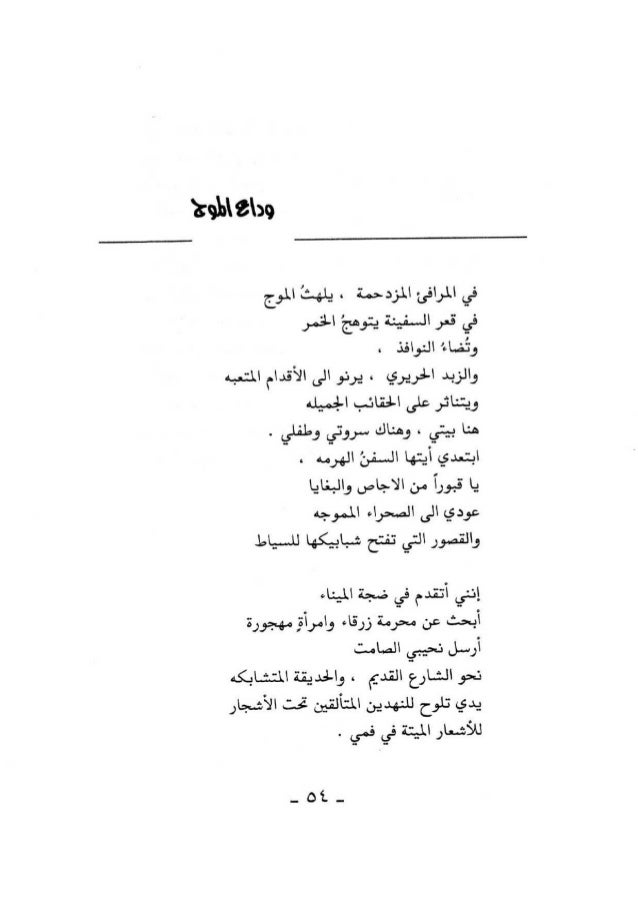 وداع الموج
في المرافئ المزدحمة ، يلهثُ الموج
في قعر السفينة يتوهجُ الخمر
وتُضاءُ النوافذ ،
والزبد الحريري ، يرنو الى الأقدام المتعبه
ويتناثر على الحقائب الجميله
هنا بيتي ، وهناك سروتي وطفلي .
ابتعدي أيتها السفنُ الهرمه ،
يا قبوراً من الاجاص والبغايا
عودي الى الصحراء المموجه
والقصور التي تفتح شبابيكها للسياط
إنني أتقدم في ضجة الميناء
أبحث عن محرمة زرقاء وامرأةٍ مهجورة
أرسل نحيبي الصامت
نحو الشارع القديم ، والحديقة المتشابكه
يدي تلوح للنهدين المتألقين تحت الأشجار
للأشعار الميتة في فمي .
ـ ٥٤ ـ